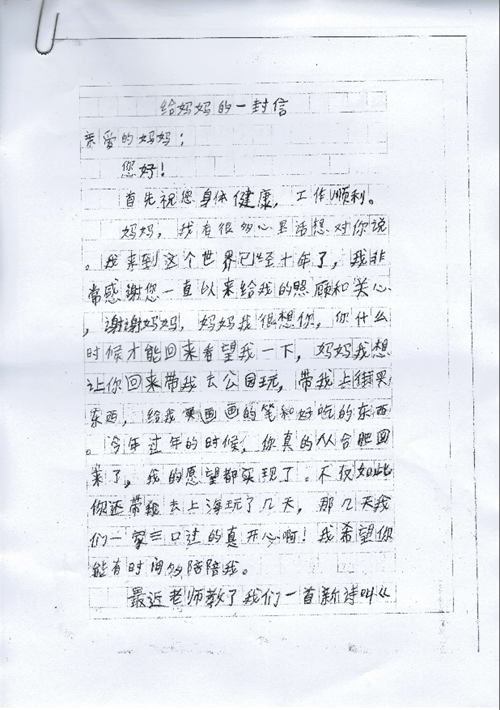 给妈妈的一封信
亲爱的妈妈：
您好！
首先祝您身体健康，工作顺利。
妈妈，我有很多心里话想对你说
。我来到这个世界已经十年了，我非
常感谢您一直以来给我的照顾和关心
，谢谢妈妈，妈妈我很想你，你什么
时候才能回来看望我一下，妈妈我想
让你回来带我去公园玩，带我上街买
东西，给我买画画的笔和好吃的东西
。今年过年的时候，你真的从合肥回
来了，我的愿望都实现了。不仅如此
你还带我去上海玩了几天，那几天我
们一家三口过的真开心啊！我希望你
能有时间多陪陪我。
最近老师教了我们一首新诗叫《